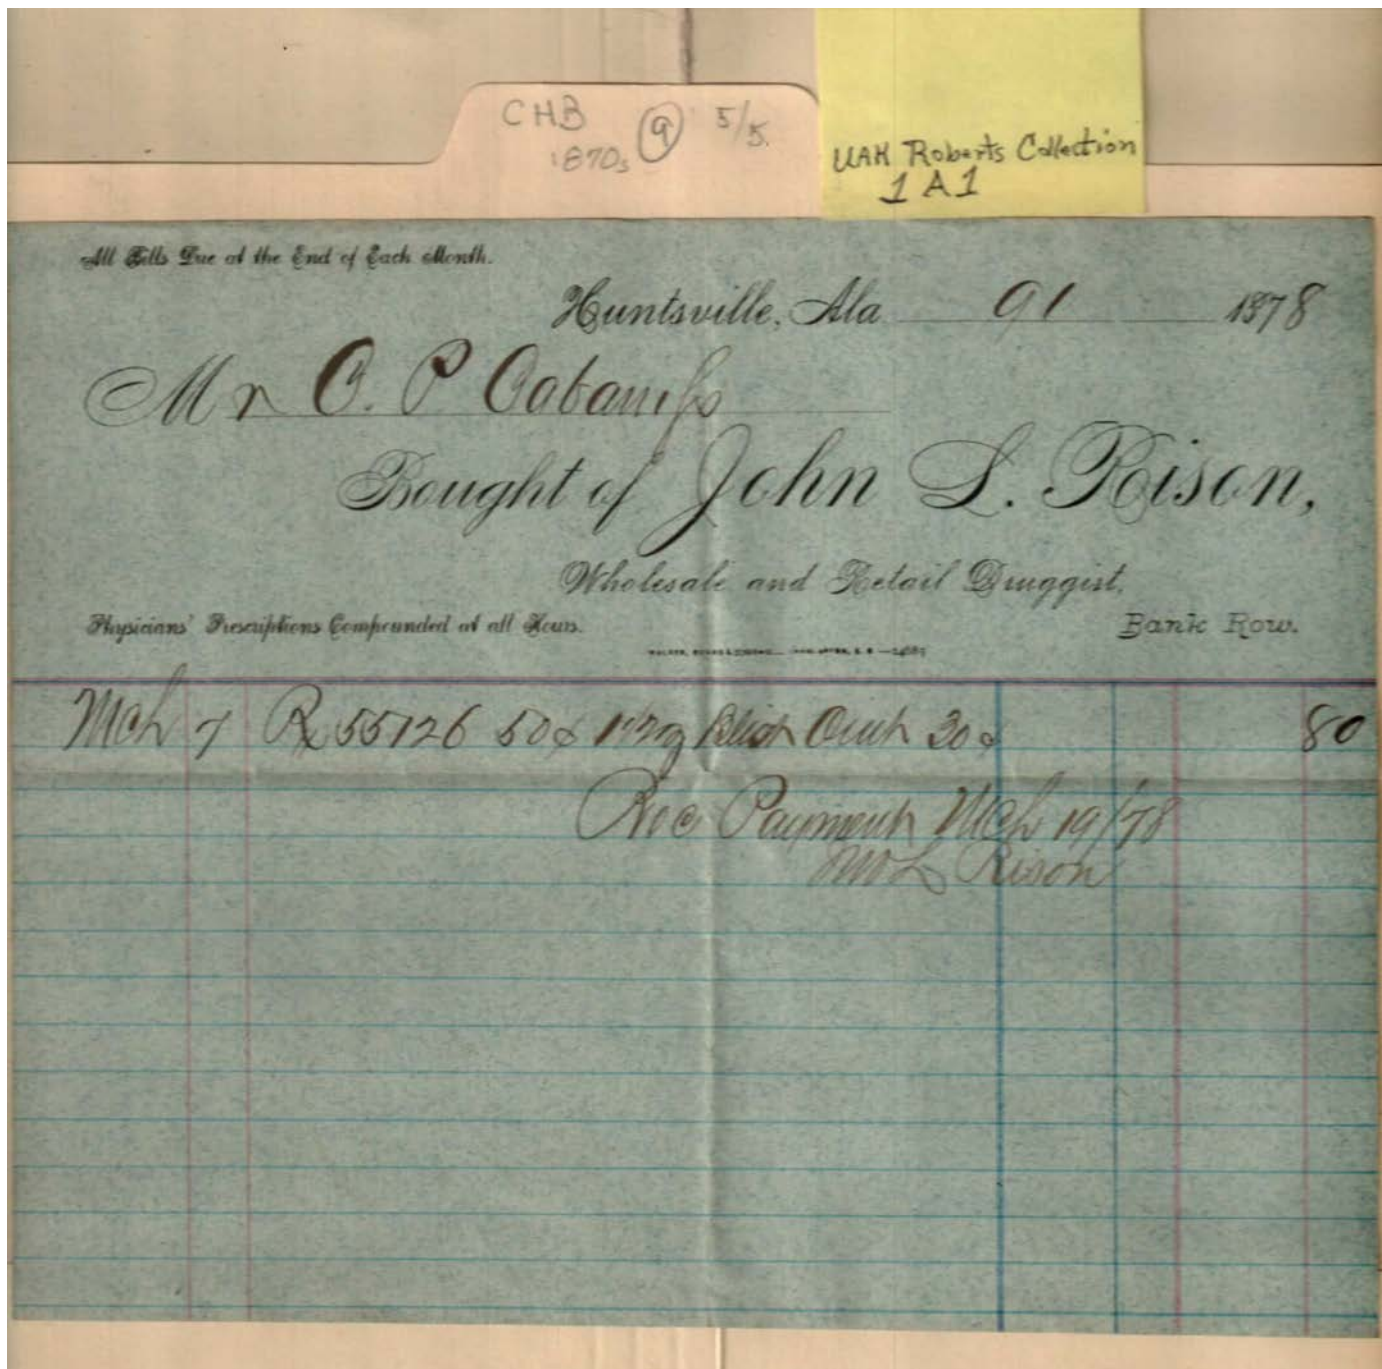 CHB 9 5/5.
1870s
UAH Roberts Collection
1 A 1
All Bills Due at the End of Each Month.
Huntsville, Ala 91 1878
Mr C. P Cabaniss
Bought of John L. Rison,
Wholesale and Retail Druggist,
Physicians' Prescriptions Compounded at all Hours.
Bank Row.
Mch 7 Rx 55126 50¢ 30¢ 80
Rec Payment Mch 19/78
Rison